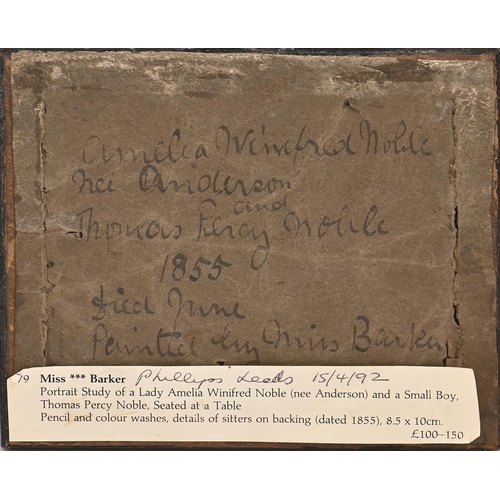 Amelia Winifred Noble
Neé Anderson
and
Thomas Percy Noble
1855
died June
Painted by Miss Barker
79 Miss *** Barker Phillips Leeds 15/4/92
Portrait Study of a Lady Amelia Winifred Noble (nee Anderson) and a Small Boy,
Thomas Percy Noble, Seated at a Table
Pencil and colour washes, details of sitters on backing (dated 1855), 8.5 x 10cm.
£100–150